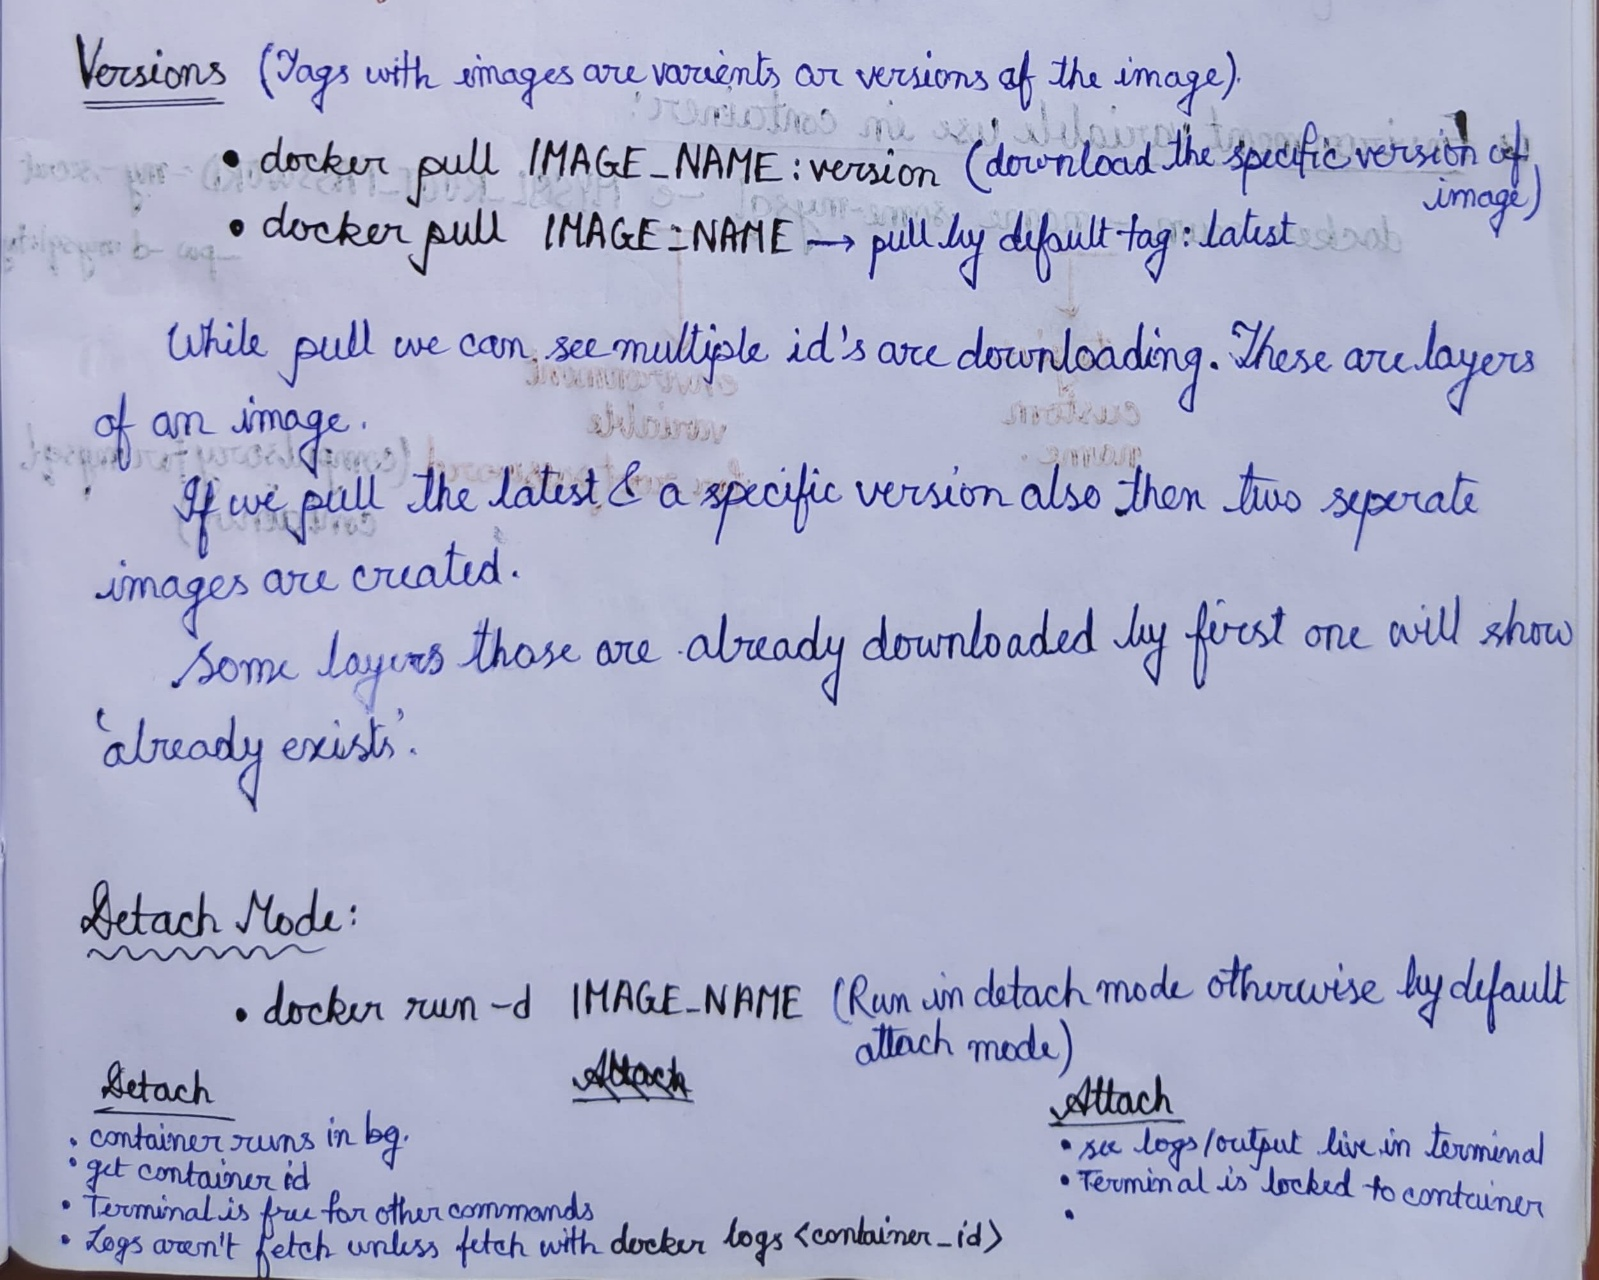 Versions (Tags with images are varients or versions of the image).
• docker pull IMAGE_NAME : version (download the specific version of image)
• docker pull IMAGE_NAME → pull by default tag : latest
While pull we can see multiple id's are downloading. These are layers
of an image.
If we pull the latest & a specific version also then two seperate
images are created.
Some layers those are already downloaded by first one will show
'already exists'.
Detach Mode:
• docker run -d IMAGE_NAME (Run in detach mode otherwise by default
attach mode)
Detach
• container runs in bg.
• get container id
• Terminal is free for other commands
• Logs aren't fetch unless fetch with docker logs <container_id>
Attach
Attach
• see logs/output live in terminal
• Terminal is locked to container
•